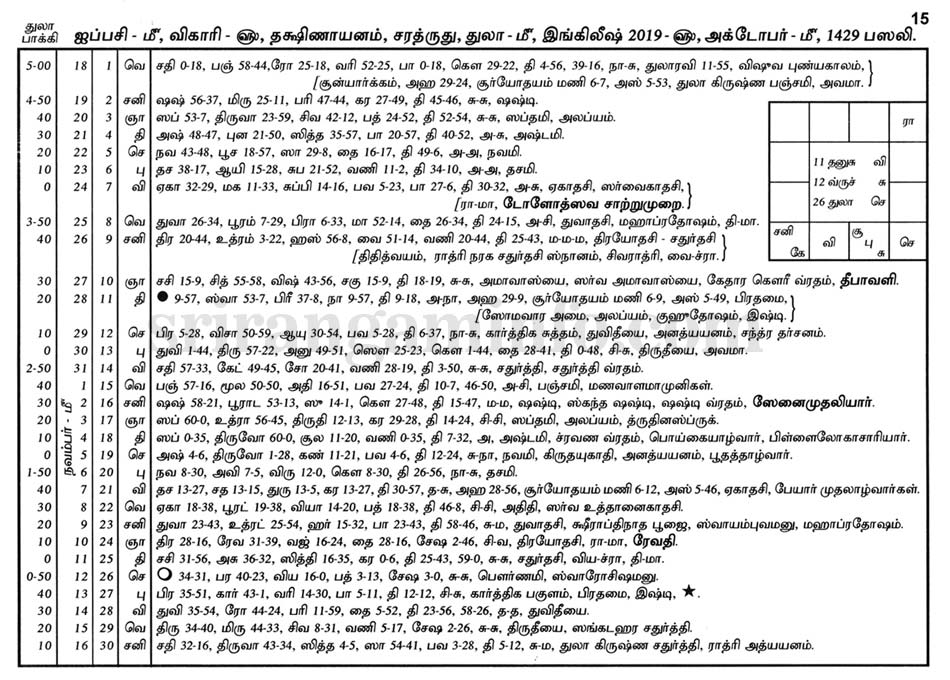 15
துலா பாக்கி ஐப்பசி - மீ, விகாரி - ௵, தக்ஷிணாயனம், சரத்ருது, துலா - மீ, இங்கிலீஷ் 2019 - ௵, அக்டோபர் - மீ, 1429 பஸலி.
5-00 18 1 வெ சதி 0-18, பஞ் 58-44, ரோ 25-18, வரி 52-25, பா 0-18, கௌ 29-22, தி 4-56, 39-16, நா-சு, துலாரவி 11-55, விஷுவ புண்யகாலம்,
[சூன்யார்க்கம், அஹ 29-24, சூர்யோதயம் மணி 6-7, அஸ் 5-53, துலா கிருஷ்ண பஞ்சமி, அவமா.
4-50 19 2 சனி ஷஷ் 56-37, மிரு 25-11, பரி 47-44, கர 27-49, தி 45-46, சு-சு, ஷஷ்டி.
40 20 3 ஞா ஸப் 53-7, திருவா 23-59, சிவ 42-12, பத் 24-52, தி 52-54, சு-சு, ஸப்தமி, அலப்யம்.
30 21 4 தி அஷ் 48-47, புன 21-50, ஸித்த 35-57, பா 20-57, தி 40-52, அ-சு, அஷ்டமி.
20 22 5 செ நவ 43-48, பூச 18-57, ஸா 29-8, தை 16-17, தி 49-6, அ-அ, நவமி.
10 23 6 பு தச 38-17, ஆயி 15-28, சுப 21-52, வணி 11-2, தி 34-10, அ-அ, தசமி.
0 24 7 வி ஏகா 32-29, மக 11-33, சுப்பி 14-16, பவ 5-23, பா 27-6, தி 30-32, அ-சு, ஏகாதசி, ஸர்வைகாதசி,
[ரா-மா, டோளோத்ஸவ சாற்றுமுறை.
3-50 25 8 வெ துவா 26-34, பூரம் 7-29, பிரா 6-33, மா 52-14, தை 26-34, தி 24-15, அ-சி, துவாதசி, மஹாப்ரதோஷம், தி-மா.
40 26 9 சனி திர 20-44, உத்ரம் 3-22, ஹஸ் 56-8, வை 51-14, வணி 20-44, தி 25-43, ம-ம-ம, திரயோதசி - சதுர்தசி
[திதித்வயம், ராத்ரி நரக சதுர்தசி ஸ்நானம், சிவராத்ரி, வை-ச்ரா.
30 27 10 ஞா சசி 15-9, சித் 55-58, விஷ் 43-56, சகு 15-9, தி 18-19, சு-சு, அமாவாஸ்யை, ஸர்வ அமாவாஸ்யை, கேதார கௌரீ வ்ரதம், தீபாவளி.
20 28 11 தி ● 9-57, ஸ்வா 53-7, பிரீ 37-8, நா 9-57, தி 9-18, அ-நா, அஹ 29-9, சூர்யோதயம் மணி 6-9, அஸ் 5-49, பிரதமை,
[ஸோமவார அமை, அலப்யம், குஹுதோஷம், இஷ்டி.
10 29 12 செ பிர 5-28, விசா 50-59, ஆயு 30-54, பவ 5-28, தி 6-37, நா-சு, கார்த்திக சுத்தம், துவிதீயை, அனத்யயனம், சந்த்ர தர்சனம்.
0 30 13 பு துவி 1-44, திரு 57-22, அனு 49-51, ஸௌ 25-23, கௌ 1-44, தை 28-41, தி 0-48, சி-சு, திருதீயை, அவமா.
2-50 31 14 வி சதி 57-33, கேட் 49-45, சோ 20-41, வணி 28-19, தி 3-50, சு-சு, சதுர்த்தி, சதுர்த்தி வ்ரதம்.
நவம்பர் - மீ
40 1 15 வெ பஞ் 57-16, மூல 50-50, அதி 16-51, பவ 27-24, தி 10-7, 46-50, அ-சி, பஞ்சமி, மணவாளமாமுனிகள்.
30 2 16 சனி ஷஷ் 58-21, பூராட 53-13, ஸு 14-1, கௌ 27-48, தி 15-47, ம-ம, ஷஷ்டி, ஸ்கந்த ஷஷ்டி, ஷஷ்டி வ்ரதம், ஸேனைமுதலியார்.
20 3 17 ஞா ஸப் 60-0, உத்ரா 56-45, திருதி 12-13, கர 29-28, தி 14-24, சி-சி, ஸப்தமி, அலப்யம், த்ருதினஸ்ப்ருக்.
10 4 18 தி ஸப் 0-35, திருவோ 60-0, சூல 11-20, வணி 0-35, தி 7-32, அ, அஷ்டமி, ச்ரவண வ்ரதம், பொய்கையாழ்வார், பிள்ளைலோகாசாரியார்.
0 5 19 செ அஷ் 4-6, திருவோ 1-28, கண் 11-21, பவ 4-6, தி 12-24, சு-நா, நவமி, கிருதயுகாதி, அனத்யயனம், பூதத்தாழ்வார்.
1-50 6 20 பு நவ 8-30, அவி 7-5, விரு 12-0, கௌ 8-30, தி 26-56, நா-சு, தசமி.
40 7 21 வி தச 13-27, சத 13-15, துரு 13-5, கர 13-27, தி 30-57, த-சு, அஹ 28-56, சூர்யோதயம் மணி 6-12, அஸ் 5-46, ஏகாதசி, பேயார் முதலாழ்வார்கள்.
30 8 22 வெ ஏகா 18-38, பூரட் 19-38, வியா 14-20, பத் 18-38, தி 46-8, சி-சி, அதிதி, ஸர்வ உத்தானைகாதசி.
20 9 23 சனி துவா 23-43, உத்ரட் 25-54, ஹர் 15-32, பா 23-43, தி 58-46, சு-ம, துவாதசி, க்ஷீராப்திநாத பூஜை, ஸ்வாயம்புவமனு, மஹாப்ரதோஷம்.
10 10 24 ஞா திர 28-16, ரேவ 31-39, வஜ் 16-24, தை 28-16, சேஷ 2-46, சி-வ, திரயோதசி, ரா-மா, ரேவதி.
0 11 25 தி சசி 31-56, அசு 36-32, ஸித்தி 16-35, கர 0-6, தி 25-43, 59-0, சு-சு, சதுர்தசி, விய-ச்ரா, தி-மா.
0-50 12 26 செ ○ 34-31, பர 40-23, விய 16-0, பத் 3-13, சேஷ 3-0, சு-சு, பௌர்ணமி, ஸ்வாரோசிஷமனு.
40 13 27 பு பிர 35-51, கார் 43-1, வரி 14-30, பா 5-11, தி 12-12, சி-சு, கார்த்திக பகுளம், பிரதமை, இஷ்டி, ★.
30 14 28 வி துவி 35-54, ரோ 44-24, பரி 11-59, தை 5-52, தி 23-56, 58-26, த-த, துவிதீயை.
20 15 29 வெ திரு 34-40, மிரு 44-33, சிவ 8-31, வணி 5-17, சேஷ 2-26, சு-சு, திருதீயை, ஸங்கடஹர சதுர்த்தி.
10 16 30 சனி சதி 32-16, திருவா 43-34, ஸித்த 4-5, ஸா 54-41, பவ 3-28, தி 5-12, சு-ம, துலா கிருஷ்ண சதுர்த்தி, ராத்ரி அத்யயனம்.
ரா
11 தனுசு வி
12 வ்ருச் சு
26 துலா செ
சனி கே
வி
சூ பு சு
செ